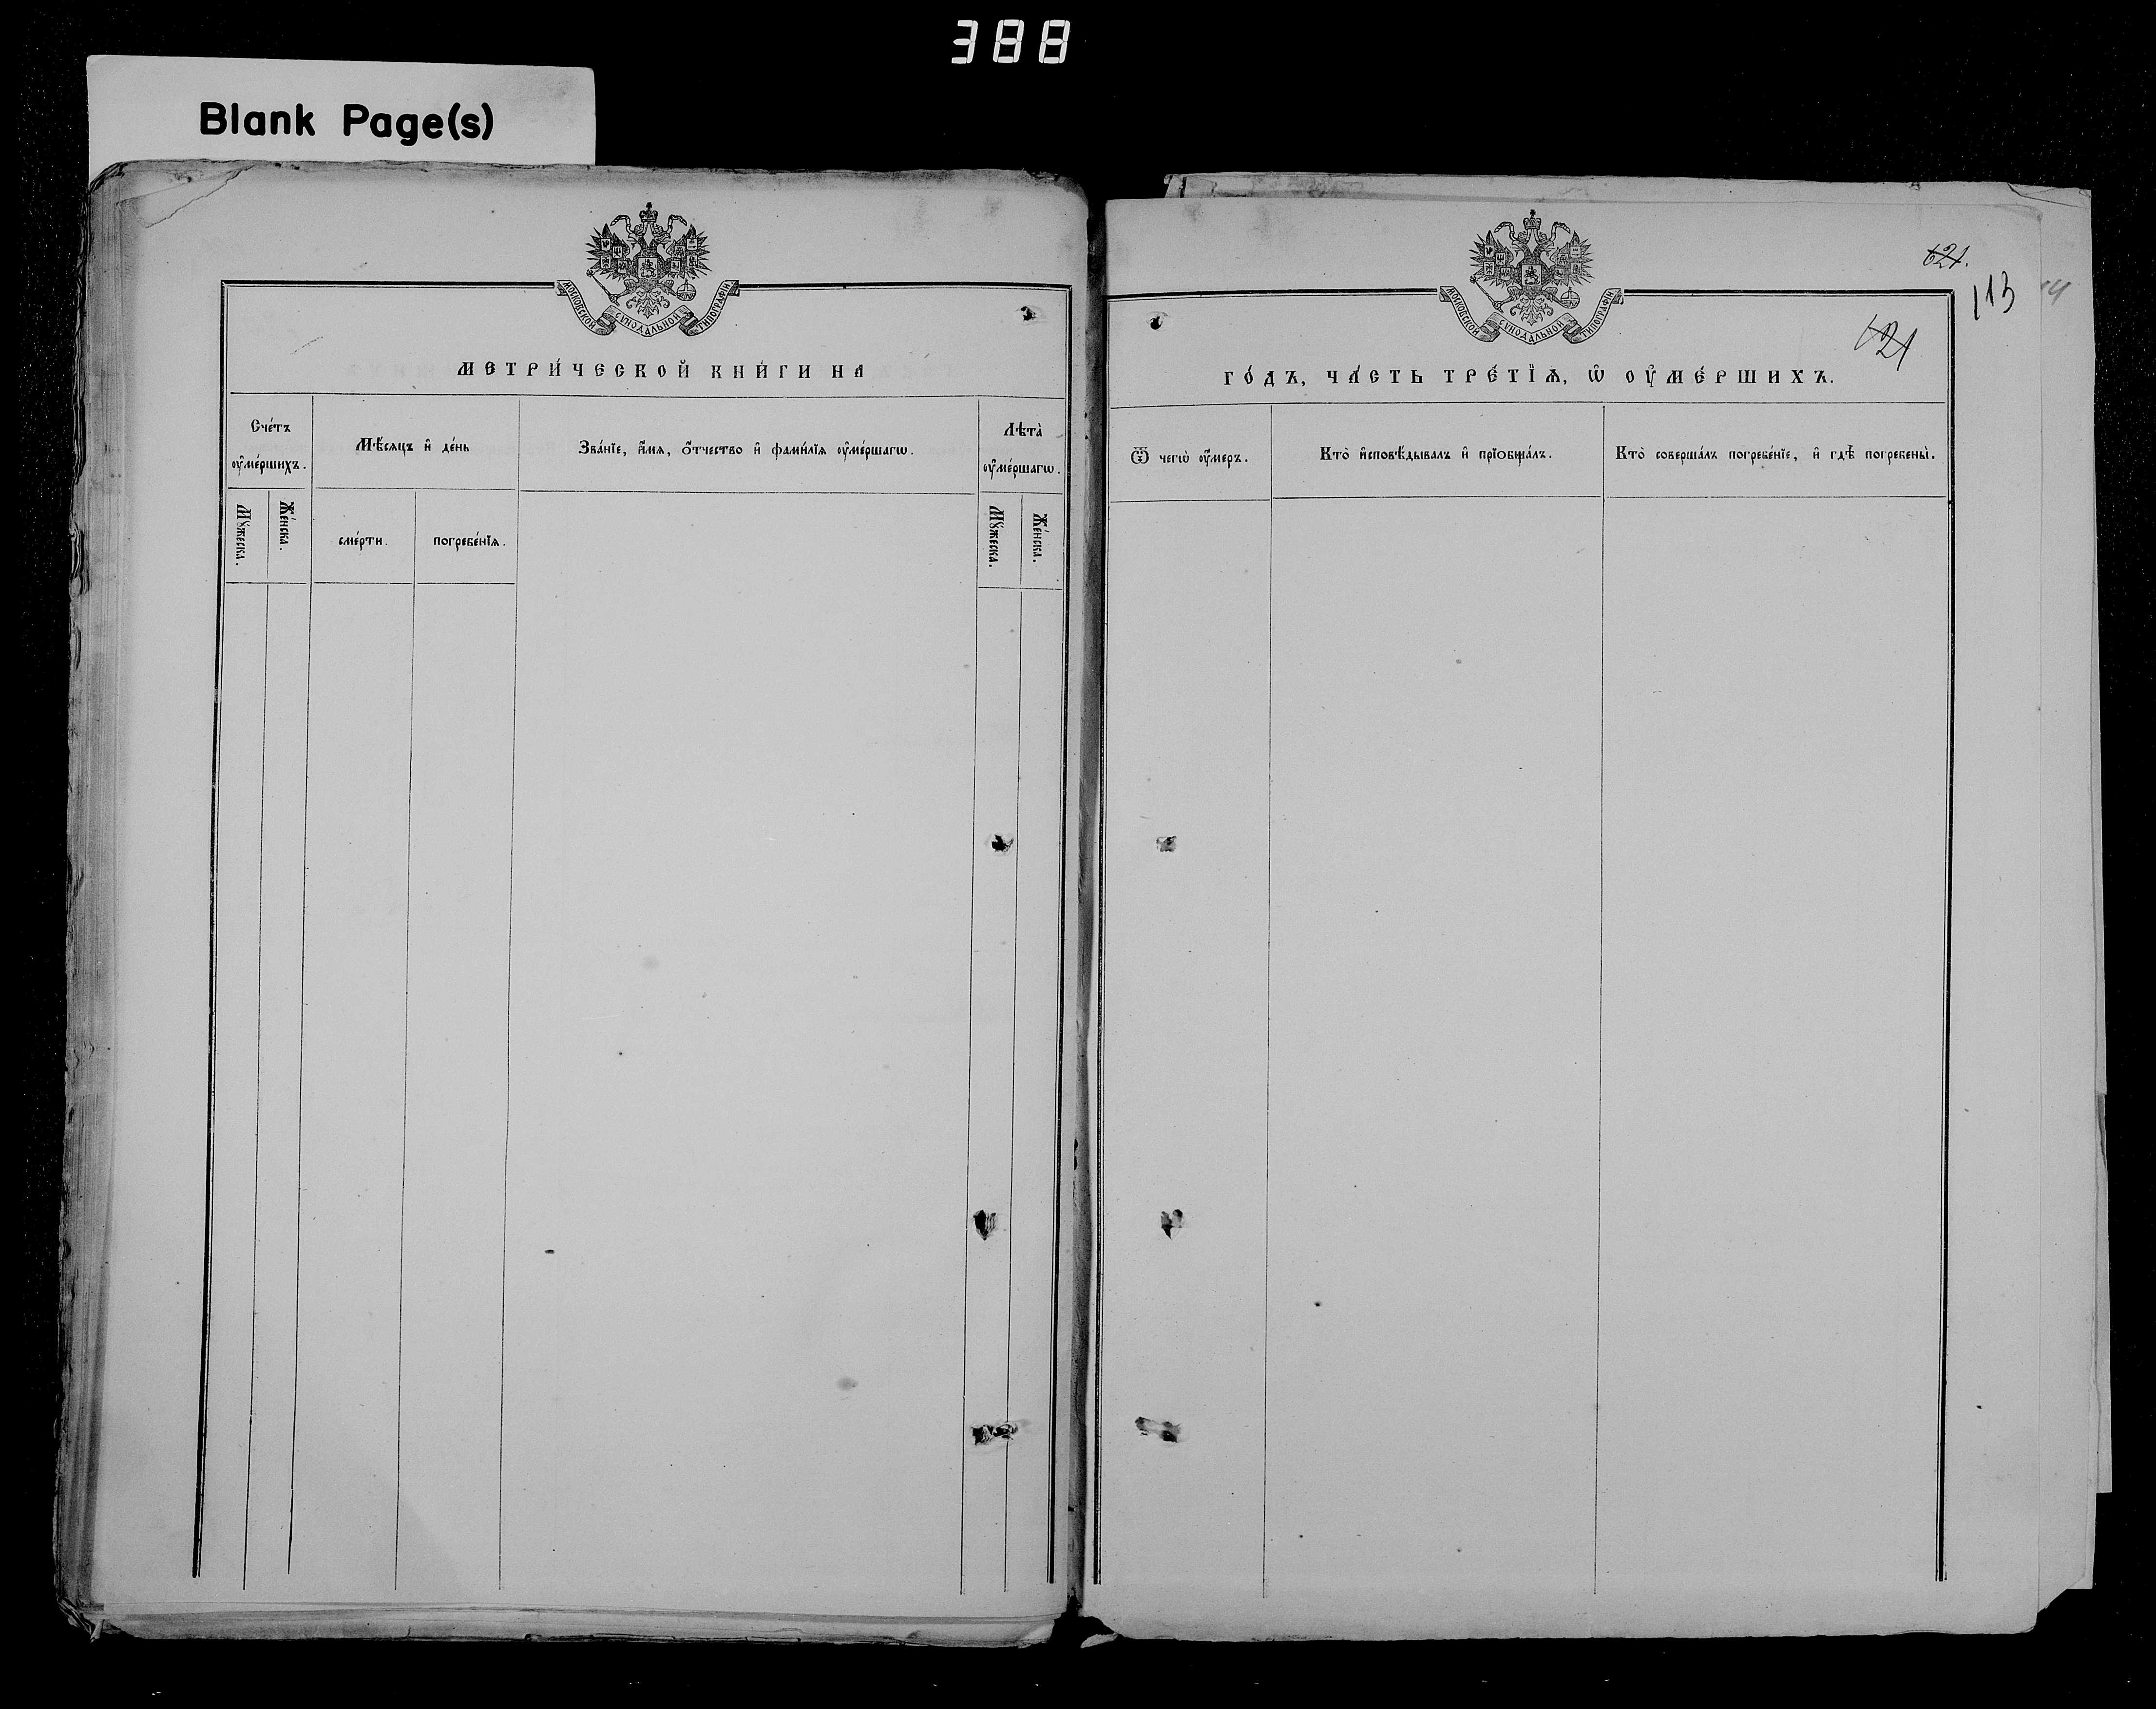 388
Blank Page(s)
МОСКОВСКОЙ СѴНОДАЛЬНОЙ ТИПОГРАФІИ
МЕТРИ́ЧЕСКОЙ КНИ́ГИ НА
Сче́тъ
ᲂу҆ме́ршихъ.
Мѣ́сяцъ и҆ де́нь
Зва́нїе, и҆́мѧ, ѻ҆́тчество и҆ фами́лїѧ ᲂу҆ме́ршагѡ.
Лѣта̀
ᲂу҆ме́ршагѡ.
Мꙋ́жеска.
Же́нска.
сме́рти.
погребе́нїѧ.
Мꙋ́жеска.
Же́нска.
МОСКОВСКОЙ СѴНОДАЛЬНОЙ ТИПОГРАФІИ
621.
113
121
ГО́ДЪ, ЧА́СТЬ ТРЕ́ТЇѦ, Ѡ҆ ОУ҆МЕ́РШИХЪ.
Ѿ чегѡ̀ ᲂу҆́меръ.
Кто̀ и҆сповѣ́дывалъ и҆ прїобща́лъ.
Кто̀ соверша́лъ погребе́нїе, и҆ гдѣ̀ погребены̀.